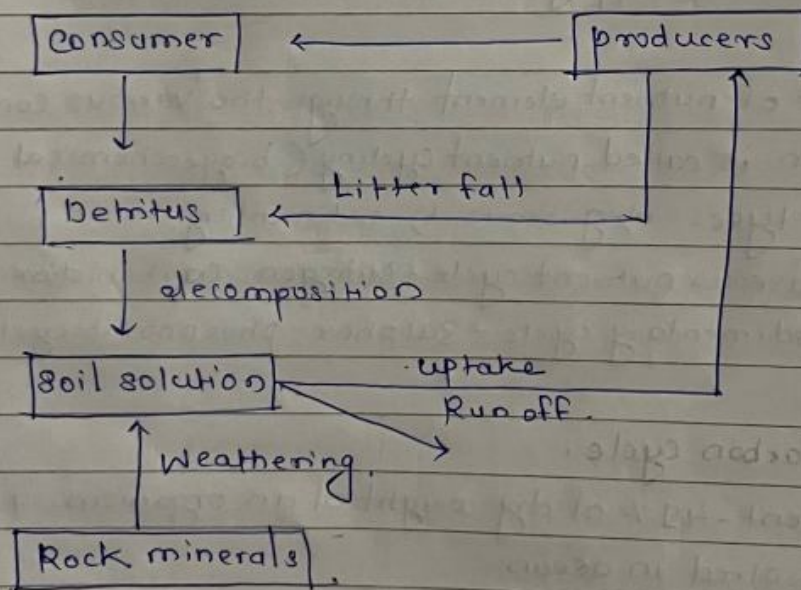 consumer
producers
Litter fall
Detritus
decomposition
soil solution
uptake
Run off.
Weathering.
Rock minerals.